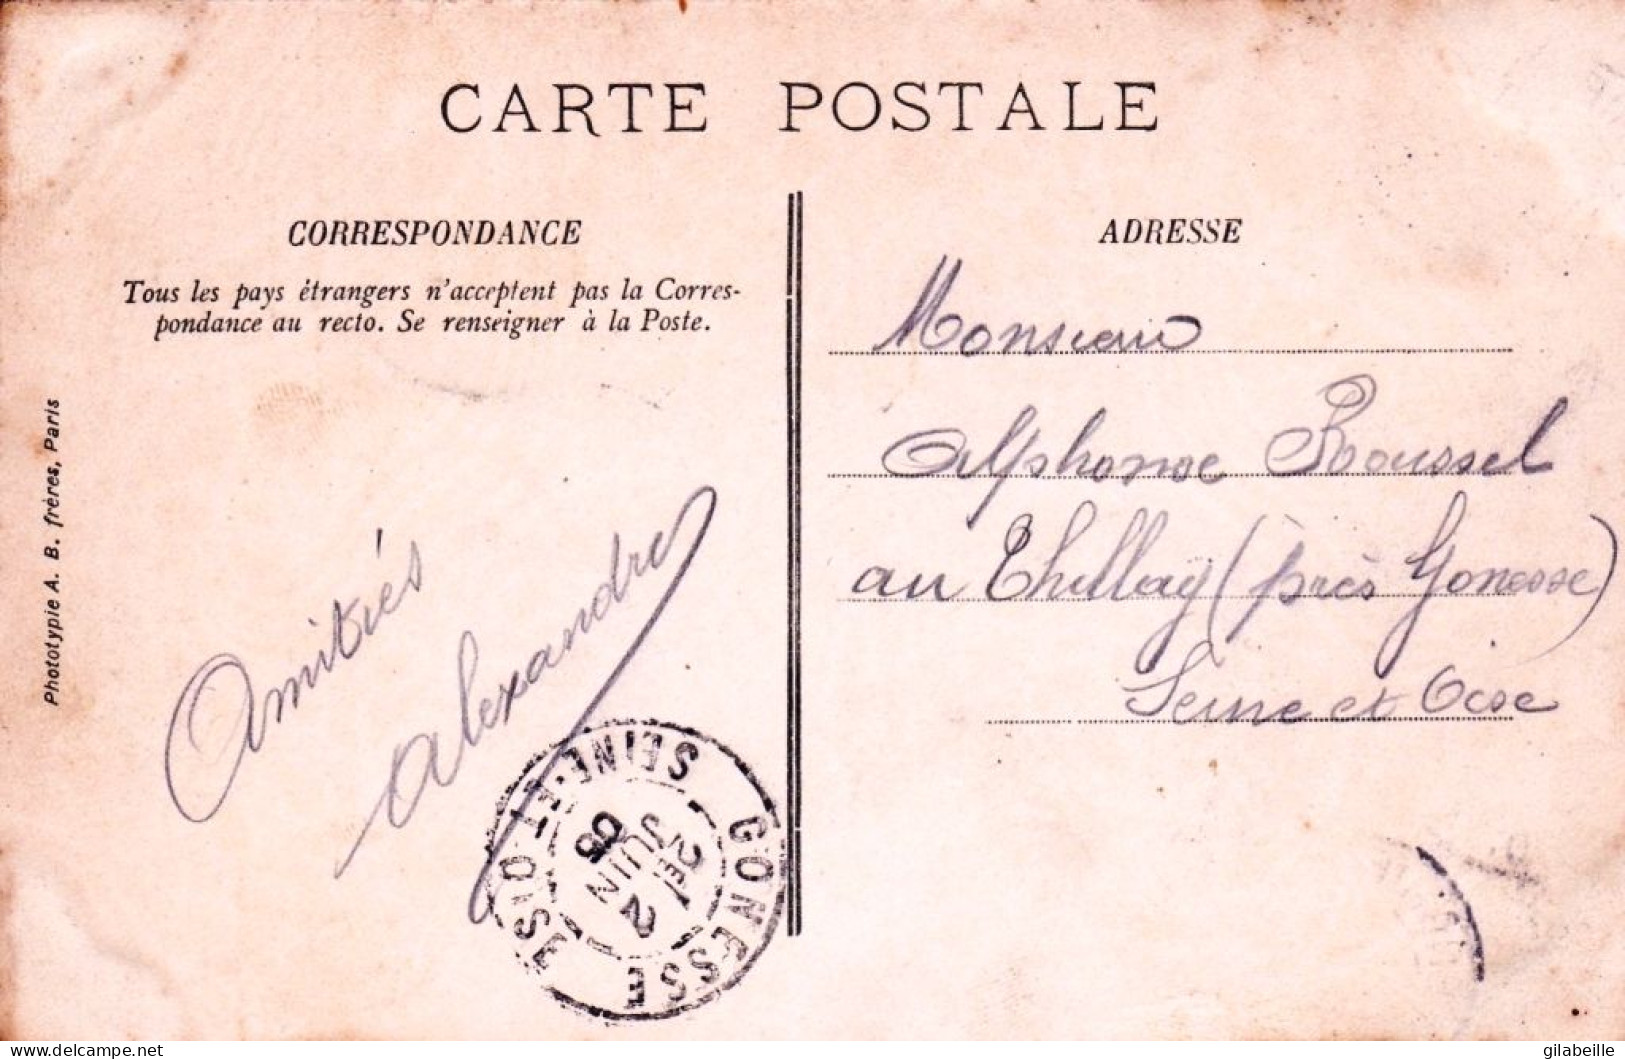 CARTE POSTALE
CORRESPONDANCE
Tous les pays étrangers n'acceptent pas la Corres-
pondance au recto. Se renseigner à la Poste.
Phototypie A. B. frères, Paris
Amitiés
Alexandre
ADRESSE
Monsieur
Alphonse Roussel
au Thillay (près Gonesse)
Seine et Oise
GONESSE
SEINE-ET-OISE
2E
2
JUIN
05
www.delcampe.net
gilabeille